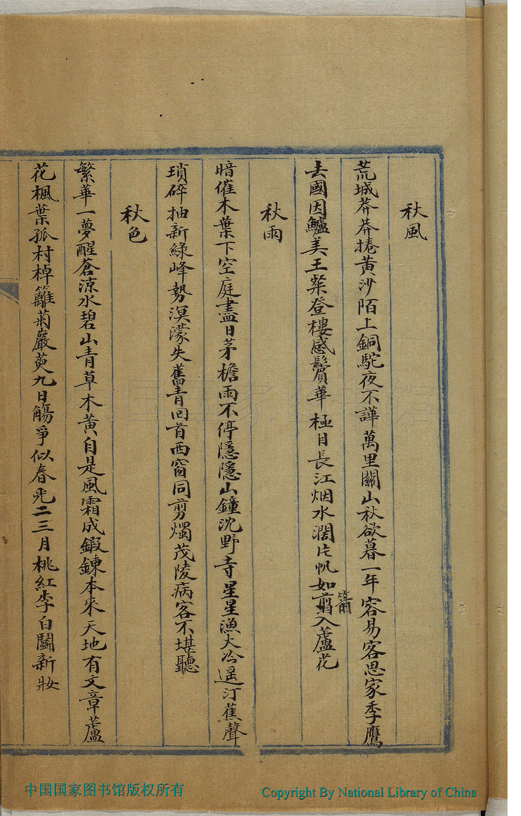 秋風
荒城莽莽捲黃沙陌上銅駝夜不譁萬里關山秋欲暮一年容易客思家季鷹
去國因鱸美王粲登樓感鬢華極目長江烟水濶片帆如翦入蘆花
箭
秋雨
暗催木葉下空庭盡日茅檐雨不停隱隱山鐘沈野寺星星漁火冷遥汀蕉聲
瑣碎抽新綠峰勢溟濛失舊青回首西窗同剪燭茂陵病客不堪聽
秋色
繁華一夢醒倉涼水碧山青草木黃自是風霜成鍛鍊本來天地有文章蘆
花楓葉孤村棹籬菊巖萸九日觴爭似春光二三月桃紅李白鬪新妝
中国国家图书馆版权所有
Copyright By National Library of China